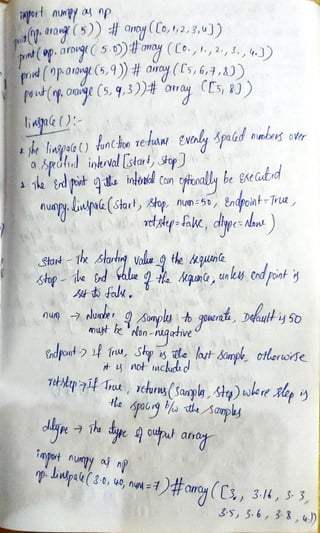 import numpy as np
print(np.arange(5)) # array([0,1,2,3,4])
print(np.arange(5.0)) # array([0., 1., 2., 3., 4.])
print(np.arange(5,9)) # array([5,6,7,8])
print(np.arange(5,9,3)) # array([5,8])
linspace():-
* The linspace() function return Evenly spaced numbers over
a specified interval [start, stop]
* The End point of the interval can optionally be
numpy.linspace(start, stop, num=50, Endpoint=True,
retstep=false, dtype=None)
start - The starting value of the sequence
stop - The End value of the sequence, unless endpoint is
set to false.
num → Number of samples to generate, Default is 50
must be Non-negative
Endpoint → If True, Stop is the last sample, otherwise
it is not included
retstep → if True, returns (samples, step) where step is
the spacing b/w the samples
dtype → The type of output array
import numpy as np
np.linspace(3.0, 40, num=7) # array([3., 3.16, 3.3,
3.5, 3.6, 3.8, 4.])